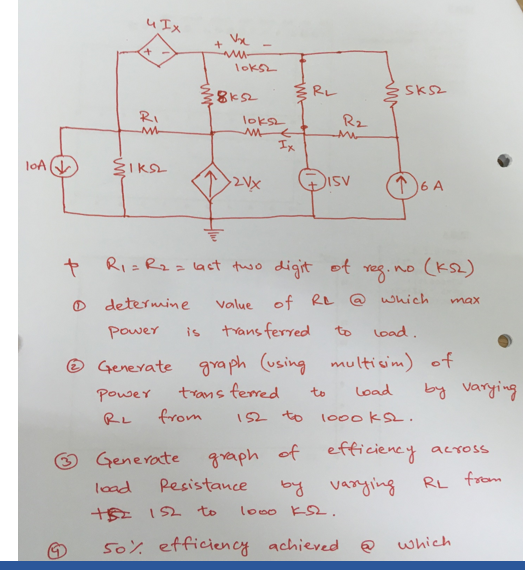 4 Ix
+ Vx -
+ -
10KΩ
8KΩ
RL
5KΩ
R1
10KΩ
R2
Ix
10A
1KΩ
2Vx
-
+
15V
6 A
+ R1 = R2 = last two digit of reg. no (KΩ)
① determine value of RL @ which max
power is transferred to load.
② Generate graph (using multisim) of
power transferred to load by varying
RL from 1Ω to 1000 KΩ.
③ Generate graph of efficiency across
load Resistance by varying RL from
1Ω to 1000 KΩ.
④ 50% efficiency achieved @ which